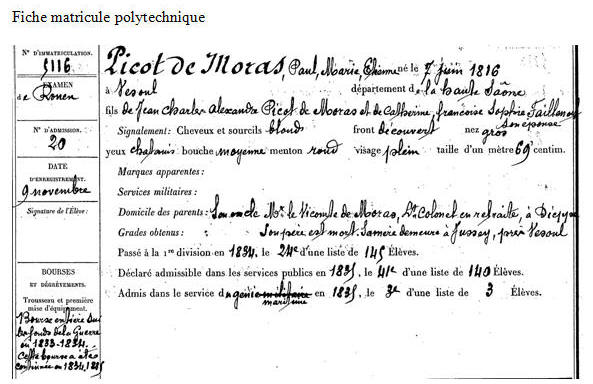 Fiche matricule polytechnique
N° D'IMMATRICULATION.
5116
EXAMEN
de Rouen
N° D'ADMISSION.
20
DATE
D'ENREGISTREMENT.
9 novembre
Signature de l'Élève :
BOURSES
ET DÉGRÈVEMENTS.
Trousseau et première
mise d'équipement.
Bourse entière sur
les fonds de la Guerre
en 1833-1834.
Cette bourse a été
continuée en 1834, 1835
Picot de Moras, Paul, Marie, Etienne né le 7 juin 1816
à Vesoul département de la haute Saône
fils de Jean Charles Alexandre Picot de Moras et de Catherine, françoise Sophie
son épouse
Signalement : Cheveux et sourcils blonds front découvert nez gros
yeux chatains bouche moyenne menton rond visage plein taille d'un mètre 69 centim.
Marques apparentes :
Services militaires :
Domicile des parents : Son oncle Mr. le Vicomte de Moras, Lt. Colonel en retraite, à Dieppe
Grades obtenus : Son père est mort. Sa mère demeure à Jussey, près Vesoul
Passé à la 1re division en 1834, le 24e d'une liste de 145 Élèves.
Déclaré admissible dans les services publics en 1835, le 41e d'une liste de 140 Élèves.
Admis dans le service du génie militaire en 1835, le 3e d'une liste de 3 Élèves.
maritime